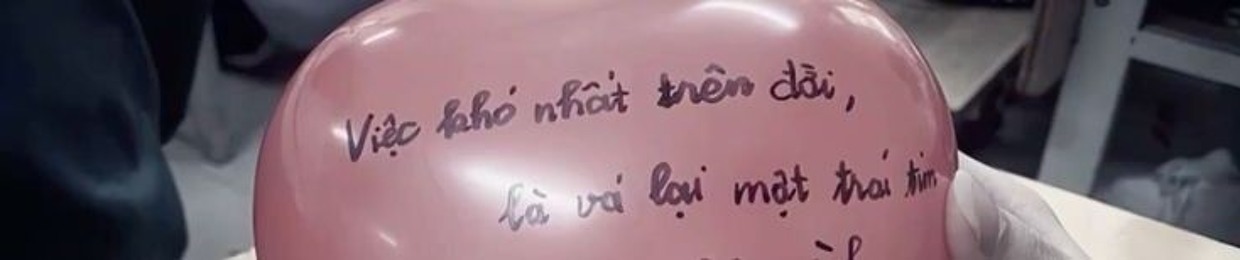 Việc khó nhất trên đời,
là vá lại một trái tim